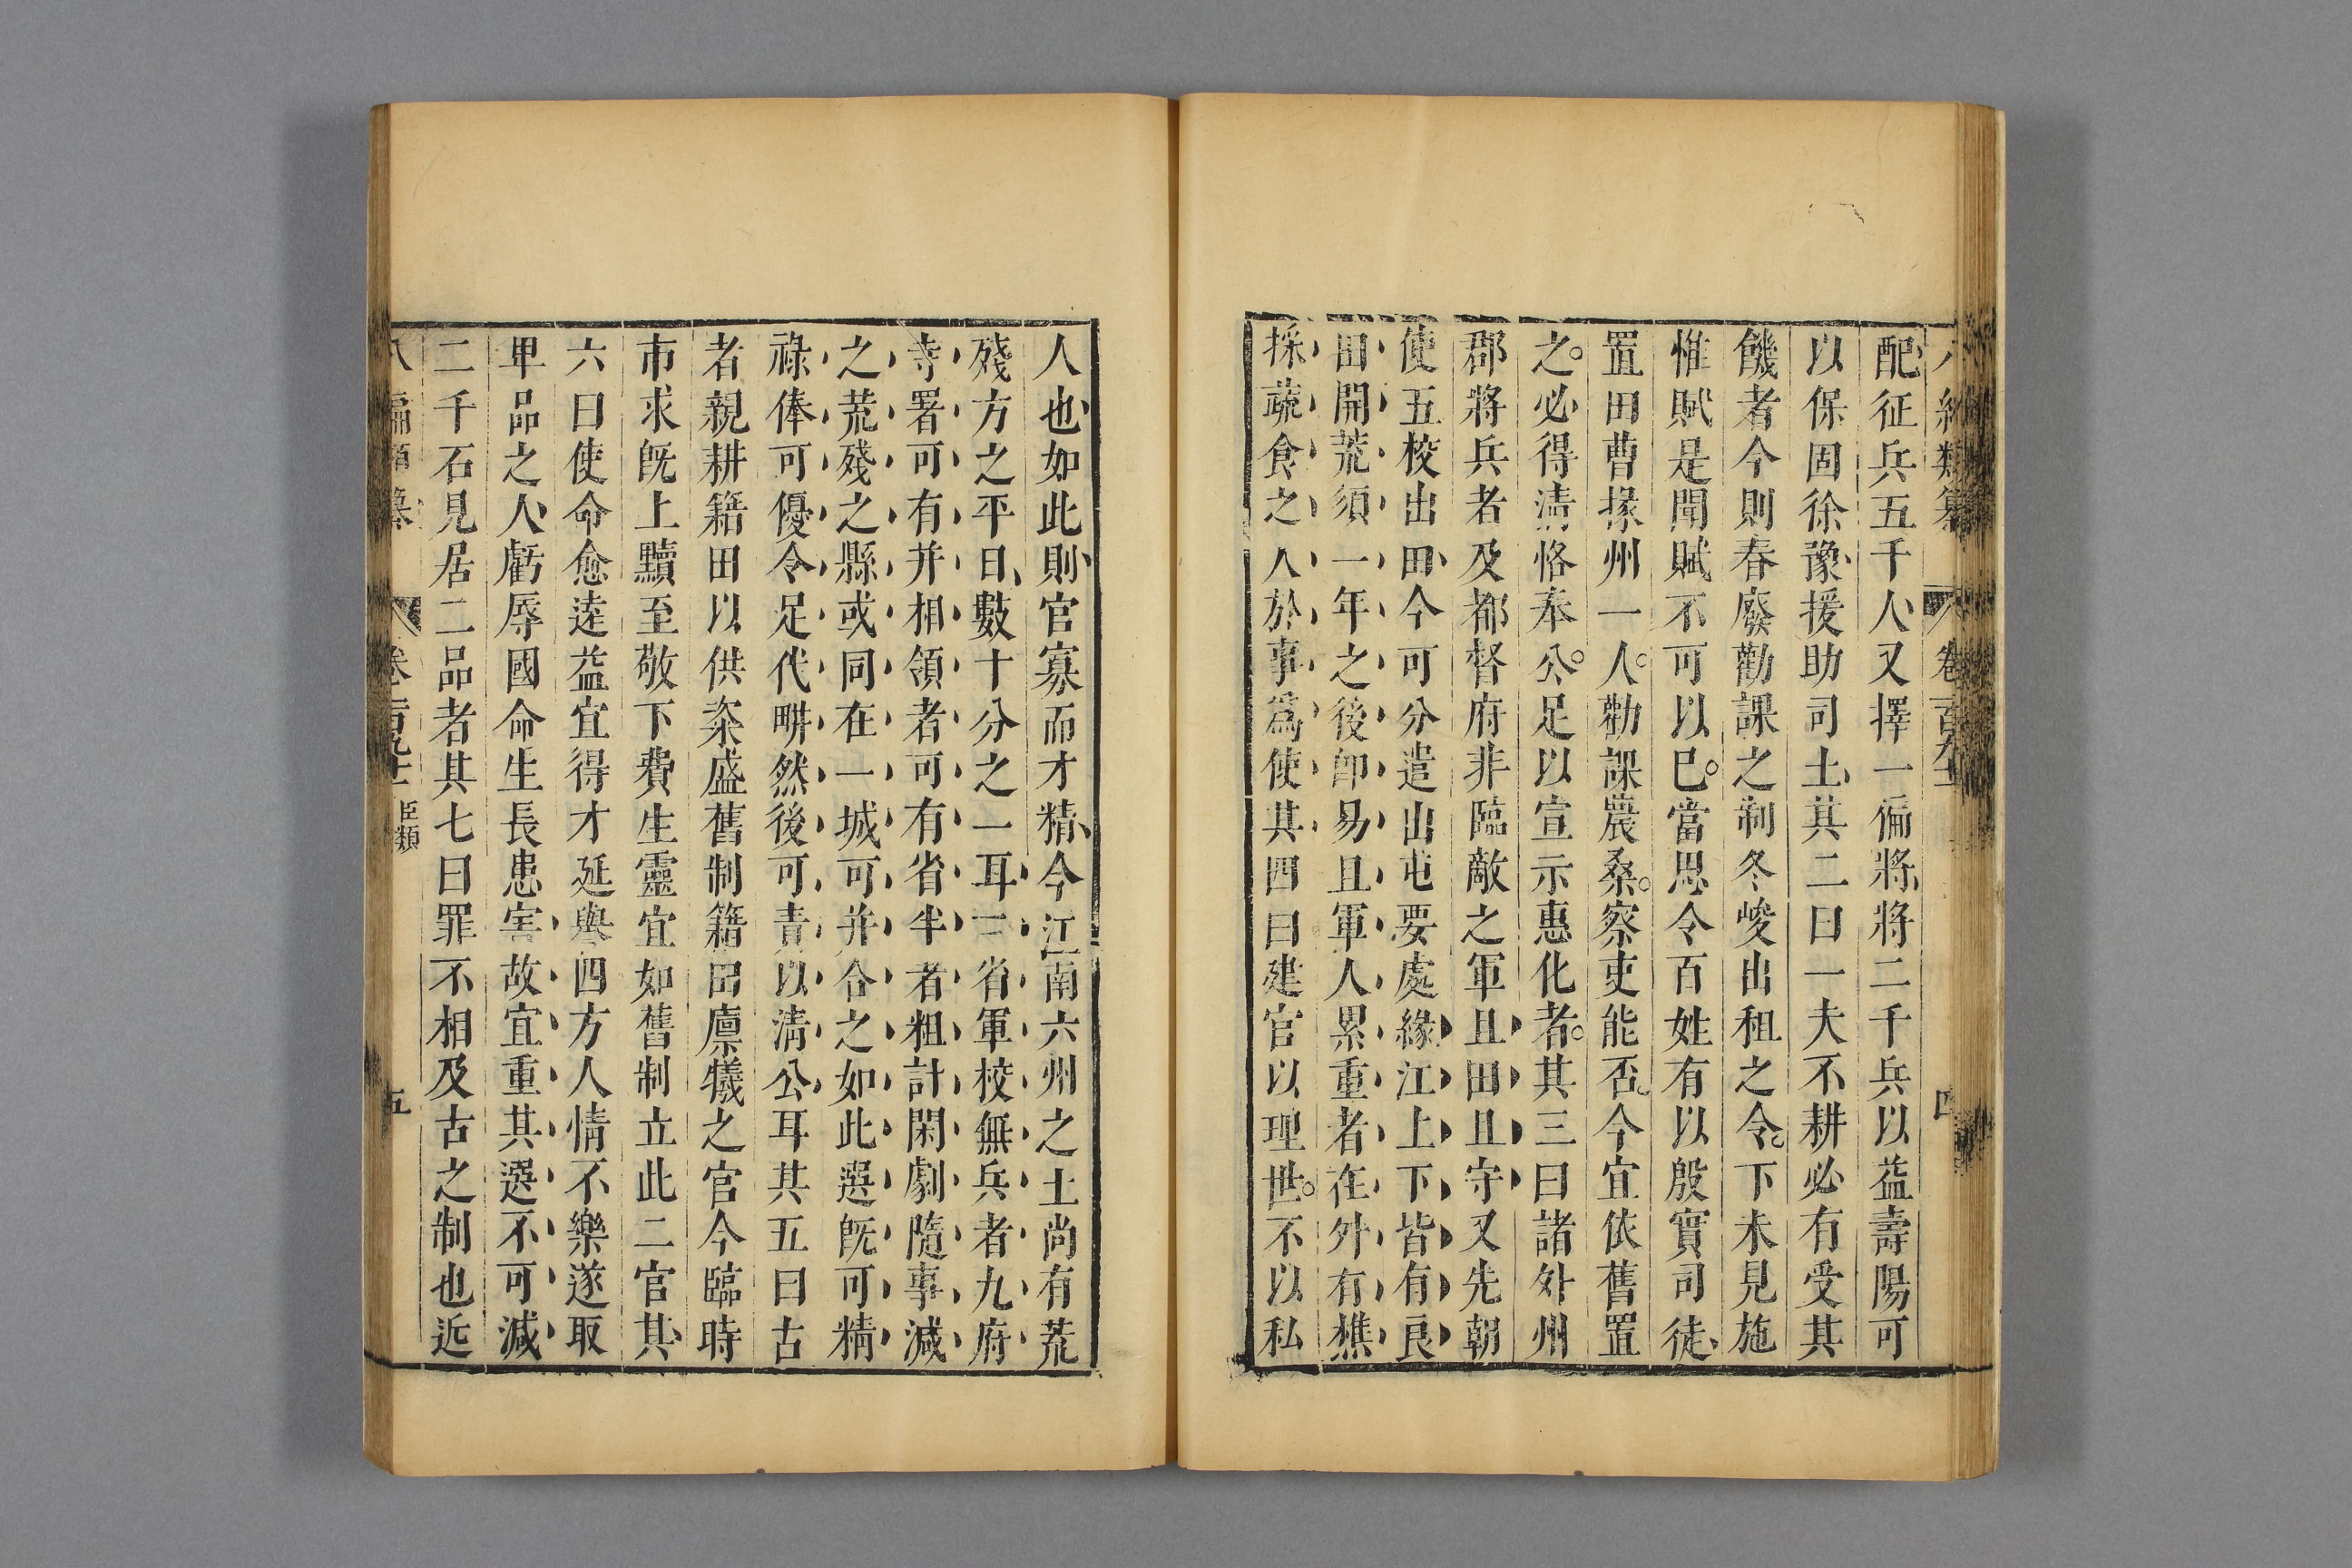 八編類纂 卷百九十 四
配征兵五千人又擇一偏將將二千兵以益壽陽可
以保固徐豫援助司土其二曰一夫不耕必有受其
饑者今則春廢勸課之制冬峻出租之令下未見施
惟賦是聞賦不可以已當思令百姓有以殷實司徒
置田曹掾州一人勸課農桑察吏能否今宜依舊置
之必得清恪奉公足以宣示惠化者其三曰諸外州
郡將兵者及都督府非臨敵之軍且田且守又先朝
使五校出田今可分遣出屯要處緣江上下皆有良
田開荒須一年之後卽易且軍人累重者在外有樵
採蔬食之人於事爲使其四曰建官以理世不以私
人也如此則官寡而才精今江南六州之土尚有荒
殘方之平日數十分之一耳三省軍校無兵者九府
寺署可有并相領者可有省半者粗計閑劇隨事減
之荒殘之縣或同在一城可并合之如此選旣可精
祿俸可優令足代畊然後可責以清公耳其五曰古
者親耕籍田以供粢盛舊制籍田廩犧之官今臨時
市求旣上黷至敬下費生靈宜如舊制立此二官其
六曰使命愈遠益宜得才延與四方人情不樂遂取
卑品之人虧辱國命生長患害故宜重其選不可減
二千石見居二品者其七曰罪不相及古之制也近
八編類纂 卷百九十 臣類 五